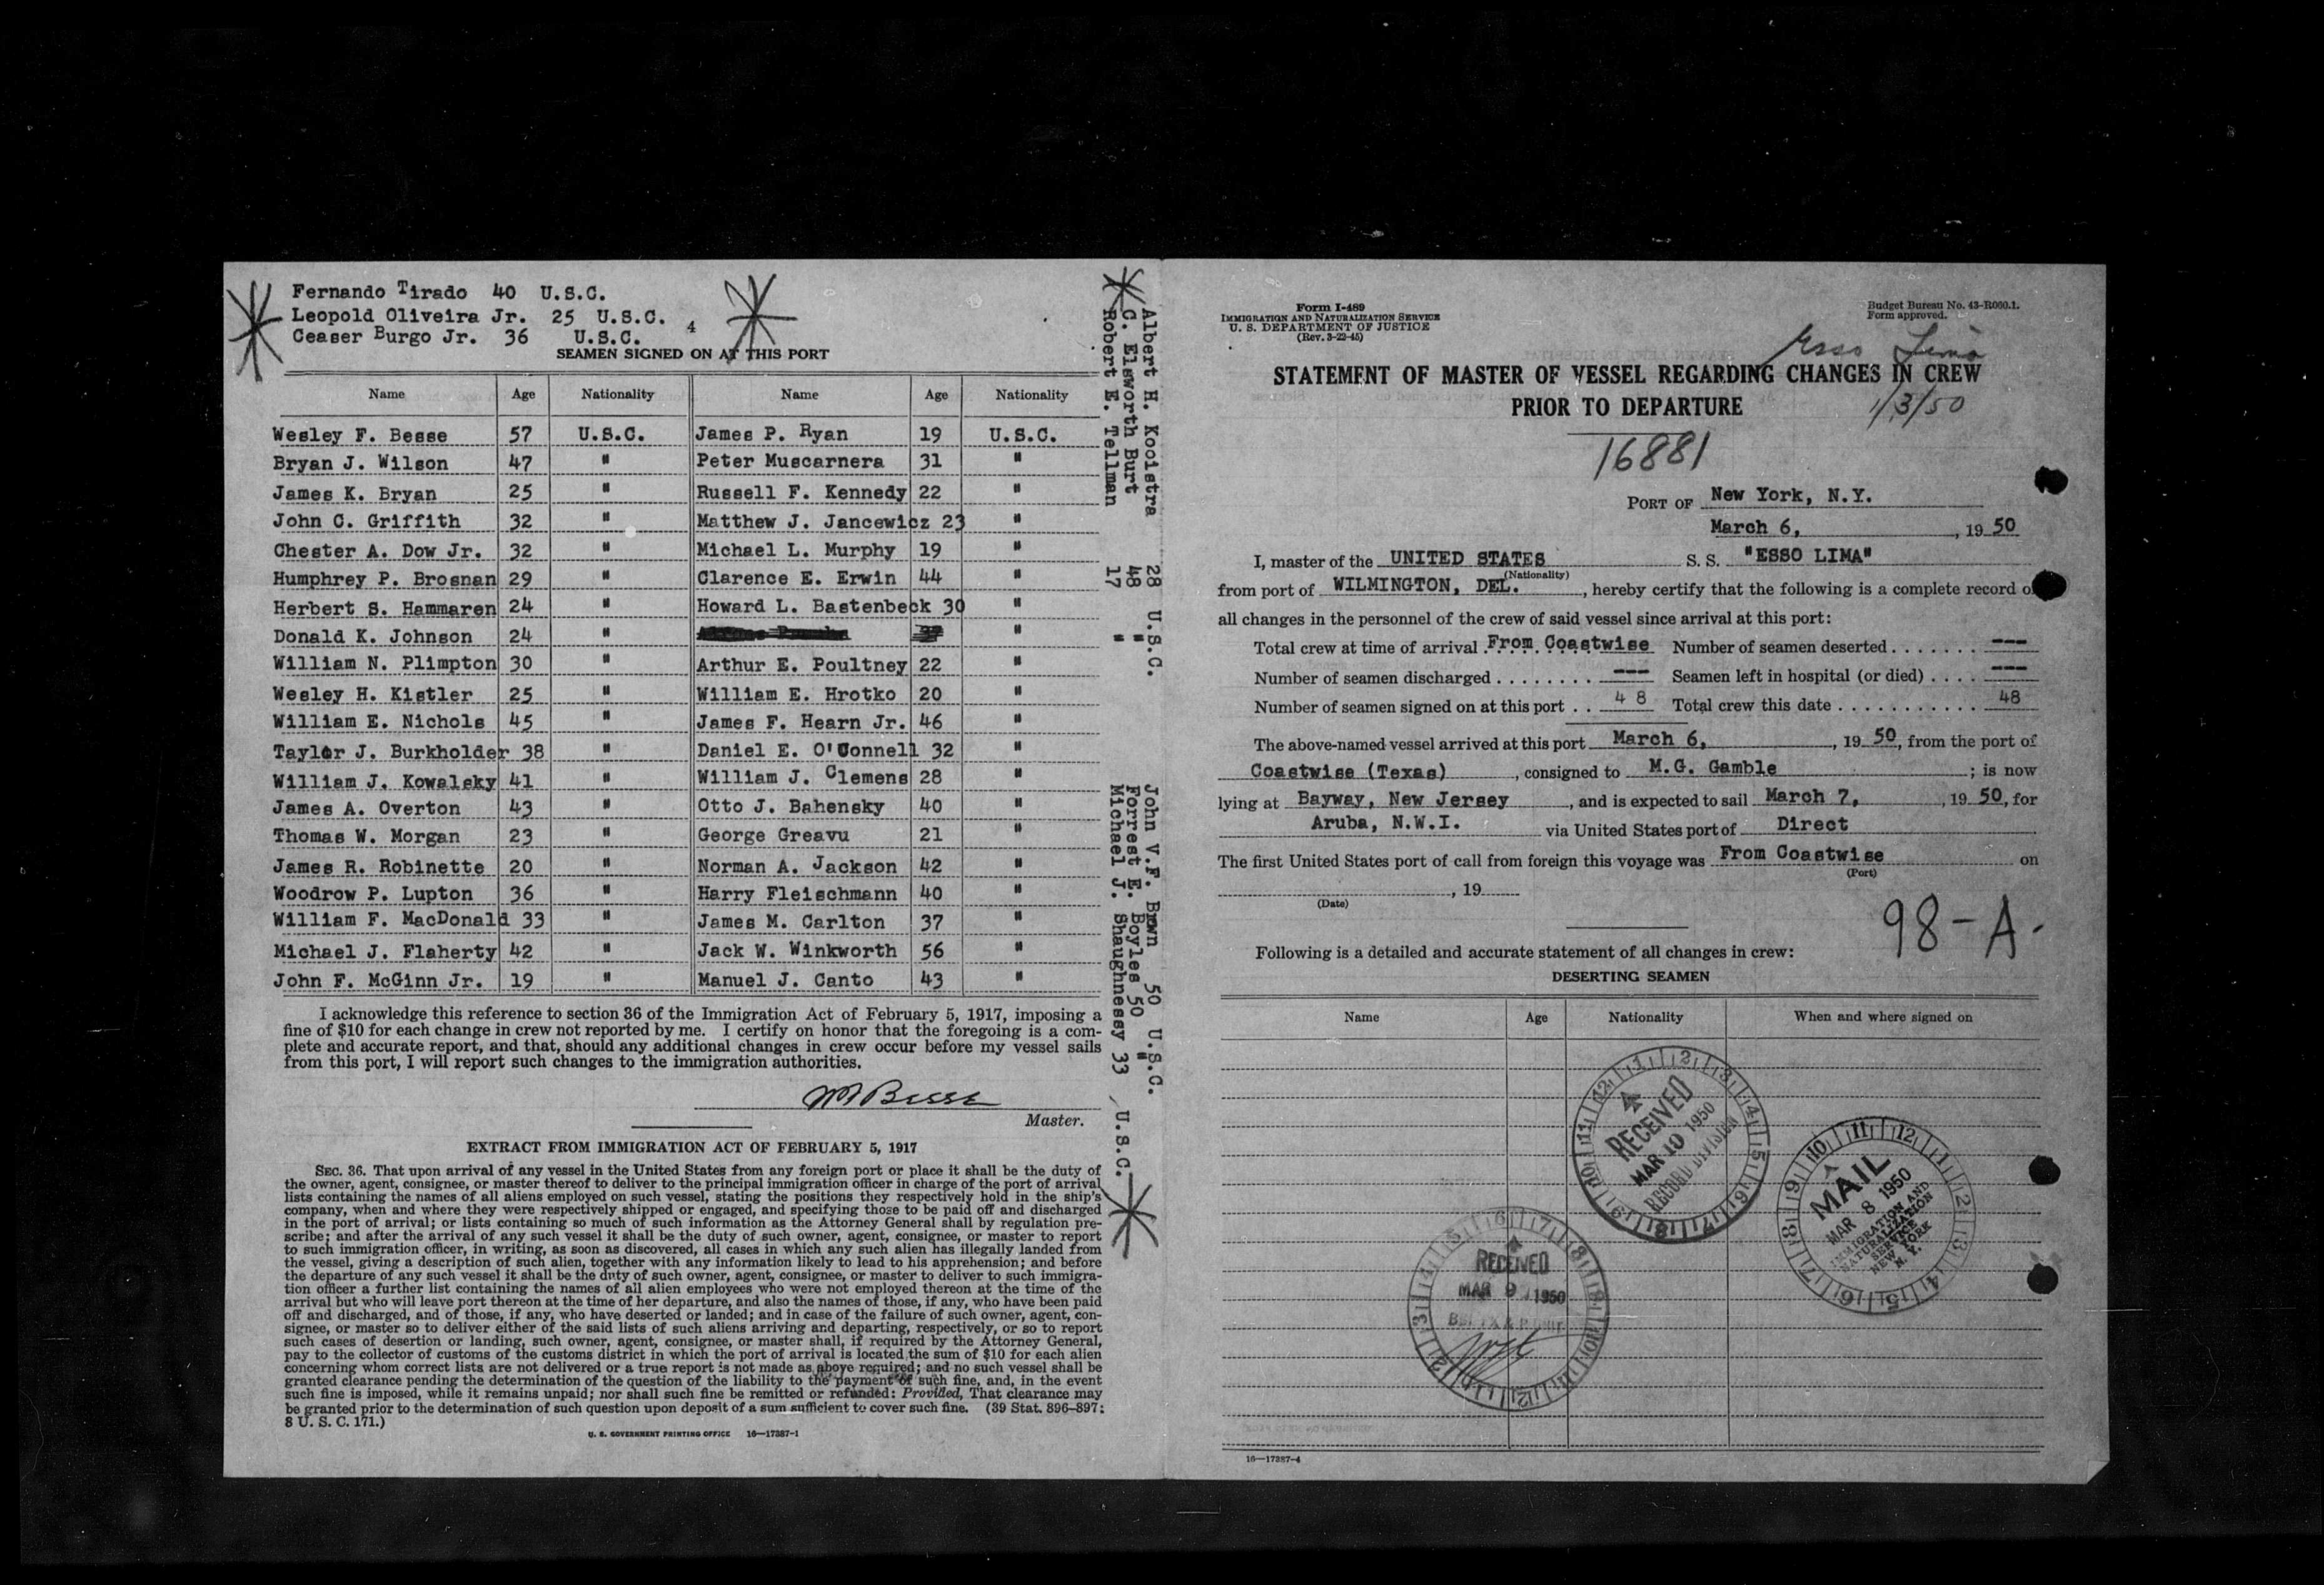 Fernando Tirado 40 U.S.C.
Leopold Oliveira Jr. 25 U.S.C.
Ceaser Burgo Jr. 36 U.S.C.
4
SEAMEN SIGNED ON AT THIS PORT
Name Age Nationality Name Age Nationality
Wesley F. Besse 57 U.S.C. James P. Ryan 19 U.S.C.
Bryan J. Wilson 47 " Peter Muscarnera 31 "
James K. Bryan 25 " Russell F. Kennedy 22 "
John C. Griffith 32 " Matthew J. Jancewicz 23 "
Chester A. Dow Jr. 32 " Michael L. Murphy 19 "
Humphrey P. Brosnan 29 " Clarence E. Erwin 44 "
Herbert S. Hammaren 24 " Howard L. Bastenbeck 30 "
Donald K. Johnson 24 " "
William N. Plimpton 30 " Arthur E. Poultney 22 "
Wesley H. Kistler 25 " William E. Hrotko 20 "
William E. Nichols 45 " James F. Hearn Jr. 46 "
Taylor J. Burkholder 38 " Daniel E. O'Connell 32 "
William J. Kowalsky 41 " William J. Clemens 28 "
James A. Overton 43 " Otto J. Bahensky 40 "
Thomas W. Morgan 23 " George Greavu 21 "
James R. Robinette 20 " Norman A. Jackson 42 "
Woodrow P. Lupton 36 " Harry Fleischmann 40 "
William F. MacDonald 33 " James M. Carlton 37 "
Michael J. Flaherty 42 " Jack W. Winkworth 56 "
John F. McGinn Jr. 19 " Manuel J. Canto 43 "
Albert H. Kooistra 28 U.S.C.
C. Elsworth Burt 48 "
Robert E. Tellman 17 "
John V.F. Brown 50 U.S.C.
Forrest E. Boyles 50 "
Michael J. Shaughnessy 33 U.S.C.
I acknowledge this reference to section 36 of the Immigration Act of February 5, 1917, imposing a
fine of $10 for each change in crew not reported by me. I certify on honor that the foregoing is a com-
plete and accurate report, and that, should any additional changes in crew occur before my vessel sails
from this port, I will report such changes to the immigration authorities.
W Besse
Master.
EXTRACT FROM IMMIGRATION ACT OF FEBRUARY 5, 1917
SEC. 36. That upon arrival of any vessel in the United States from any foreign port or place it shall be the duty of
the owner, agent, consignee, or master thereof to deliver to the principal immigration officer in charge of the port of arrival
lists containing the names of all aliens employed on such vessel, stating the positions they respectively hold in the ship's
company, when and where they were respectively shipped or engaged, and specifying those to be paid off and discharged
in the port of arrival; or lists containing so much of such information as the Attorney General shall by regulation pre-
scribe; and after the arrival of any such vessel it shall be the duty of such owner, agent, consignee, or master to report
to such immigration officer, in writing, as soon as discovered, all cases in which any such alien has illegally landed from
the vessel, giving a description of such alien, together with any information likely to lead to his apprehension; and before
the departure of any such vessel it shall be the duty of such owner, agent, consignee, or master to deliver to such immigra-
tion officer a further list containing the names of all alien employees who were not employed thereon at the time of the
arrival but who will leave port thereon at the time of her departure, and also the names of those, if any, who have been paid
off and discharged, and of those, if any, who have deserted or landed; and in case of the failure of such owner, agent, con-
signee, or master so to deliver either of the said lists of such aliens arriving and departing, respectively, or so to report
such cases of desertion or landing, such owner, agent, consignee, or master shall, if required by the Attorney General,
pay to the collector of customs of the customs district in which the port of arrival is located the sum of $10 for each alien
concerning whom correct lists are not delivered or a true report is not made as above required; and no such vessel shall be
granted clearance pending the determination of the question of the liability to the payment of such fine, and, in the event
such fine is imposed, while it remains unpaid; nor shall such fine be remitted or refunded: Provided, That clearance may
be granted prior to the determination of such question upon deposit of a sum sufficient to cover such fine. (39 Stat. 896–897;
8 U. S. C. 171.)
U. S. GOVERNMENT PRINTING OFFICE 16—17387-1
Form I-489
IMMIGRATION AND NATURALIZATION SERVICE
U. S. DEPARTMENT OF JUSTICE
(Rev. 3-22-45)
Budget Bureau No. 43-R060.1.
Form approved.
Esso Lima
STATEMENT OF MASTER OF VESSEL REGARDING CHANGES IN CREW
PRIOR TO DEPARTURE
1/3/50
16881
PORT OF New York, N.Y.
March 6, , 19 50
I, master of the UNITED STATES S. S. "ESSO LIMA"
(Nationality)
from port of WILMINGTON, DEL. , hereby certify that the following is a complete record o
all changes in the personnel of the crew of said vessel since arrival at this port:
Total crew at time of arrival From Coastwise Number of seamen deserted ---
Number of seamen discharged --- Seamen left in hospital (or died) ---
Number of seamen signed on at this port 48 Total crew this date 48
The above-named vessel arrived at this port March 6, , 19 50, from the port of
Coastwise (Texas) , consigned to M.G. Gamble ; is now
lying at Bayway, New Jersey , and is expected to sail March 7, , 19 50, for
Aruba, N.W.I. via United States port of Direct
The first United States port of call from foreign this voyage was From Coastwise on
(Port)
, 19
(Date)
98-A.
Following is a detailed and accurate statement of all changes in crew:
DESERTING SEAMEN
Name Age Nationality When and where signed on
RECEIVED
MAR 10 1950
RECORD DIVISION
MAIL
MAR 8 1950
IMMIGRATION AND
NATURALIZATION
SERVICE
NEW YORK
N. Y.
RECEIVED
MAR 9 1950
16—17387-4